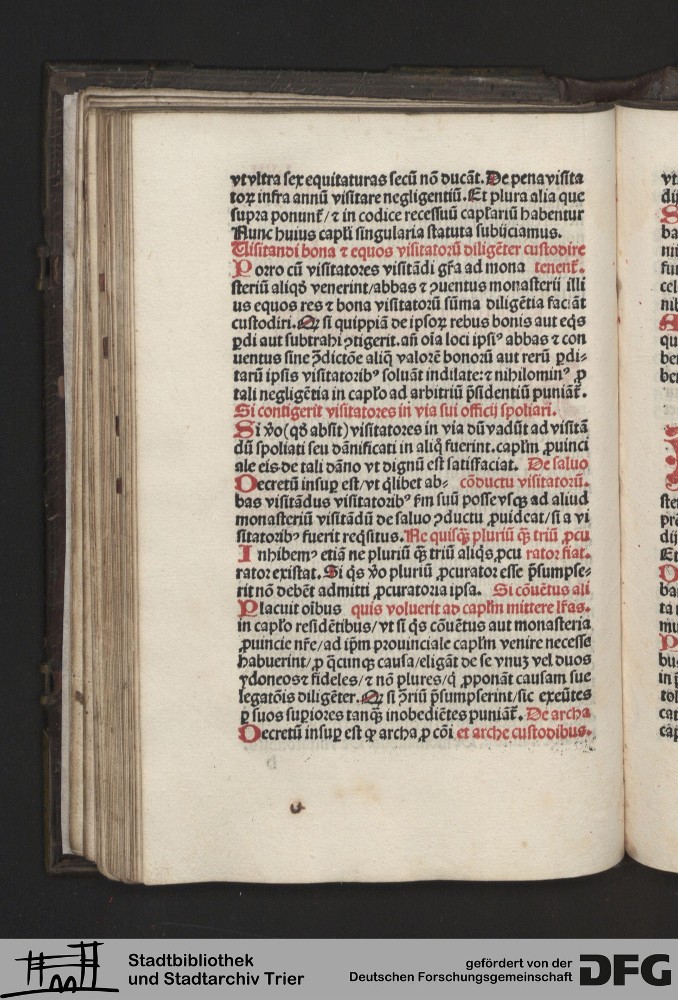 vt vltra sex equitaturas secū nō ducāt. De pena visita
toꝝ infra annū visitare negligentiū. Et plura alia que
supra ponunt̄/ ⁊ in codice recessuū capl̄ariū habentur
Nunc huius capl̄i singularia statuta subijciamus.
Uisitandi bona ⁊ equos visitatorū diligēter custodire
Porro cū visitatores visitādi gr̄a ad mona tenent̄.
steriū aliqḋ venerint/abbas ⁊ ꝯuentus monasterii illi
us equos res ⁊ bona visitatorū sūma diligētia faciāt
custodiri. Ꝙ si quippiā de ipsoꝝ rebus bonis aut eq̇s
ꝑdi aut subtrahi ꝯtigerit. añ oīa loci ipsiꝰ abbas ⁊ con
uentus sine ꝯ̄dictōe aliq̄ valorē bonorū aut rerū ꝑdi-
tarū ipsis visitatoribꝰ soluāt indilate: ⁊ nihilominꝰ ꝓ
tali negligētia in capl̄o ad arbitriū p̄sidentiū puniāt̄.
Si contigerit visitatores in via sui officij spoliari.
Si v̄o (qḋ absit) visitatores in via dū vadūt ad visitā
dū spoliati seu dānificati in aliq̄ fuerint. capl̄m ꝓuinci
ale eis de tali dāno vt dignū est satisfaciat. De saluo
Decretū insuꝑ est/vt q̇libet ab- cōductu visitatorū.
bas visitādus visitatoribꝰ ẜm suū posse vsqꝫ ad aliud
monasteriū visitādū de saluo ꝯductu ꝓuideat/si a vi
sitatoribꝰ fuerit req̇situs. Ne quisq̄ꝫ pluriū q̄ꝫ triū ꝓcu
Inhibemꝰ etiā ne pluriū q̄ꝫ triū aliq̇s ꝓcu rator fiat.
rator existat. Si q̇s v̄o pluriū ꝓcurator esse p̄sumpse-
rit nō debēt admitti ꝓcuratoria ipsa. Si cōuētus ali
Placuit oībus quis voluerit ad capl̄m mittere lr̄as.
in capl̄o residētibus/vt si q̇s cōuētus aut monasteria
ꝓuincie nr̄e/ad ip̄m prouinciale capl̄m venire necesse
habuerint/ꝓ q̄cunqꝫ causa/eligāt de se vnuꝫ vel duos
ydoneos ⁊ fideles/⁊ nō plures/q̇ ꝓponāt causam sue
legatōis diligēter. Ꝙ si ꝯ̄riū p̄sumpserint/sic exeūtes
ꝑ suos suꝑiores tanq̄ꝫ inobediētes puniāt̄. De archa
Decretū insuꝑ est ꝙ archa ꝓ cōi et arche custodibus.
Stadtbibliothek
und Stadtarchiv Trier
gefördert von der
Deutschen Forschungsgemeinschaft
DFG